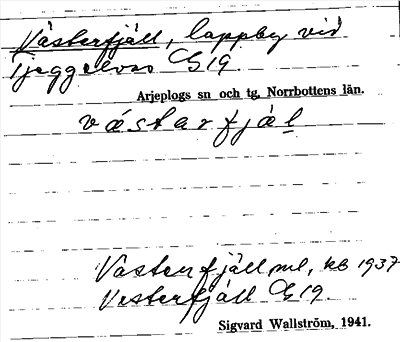 Västerfjäll, lappby vid
Tjeggelvas G19.
Arjeplogs sn och tg, Norrbottens län.
västarfjäl
Västerfjäll ml, kb 1937
Vesterfjäll G19.
Sigvard Wallström, 1941.